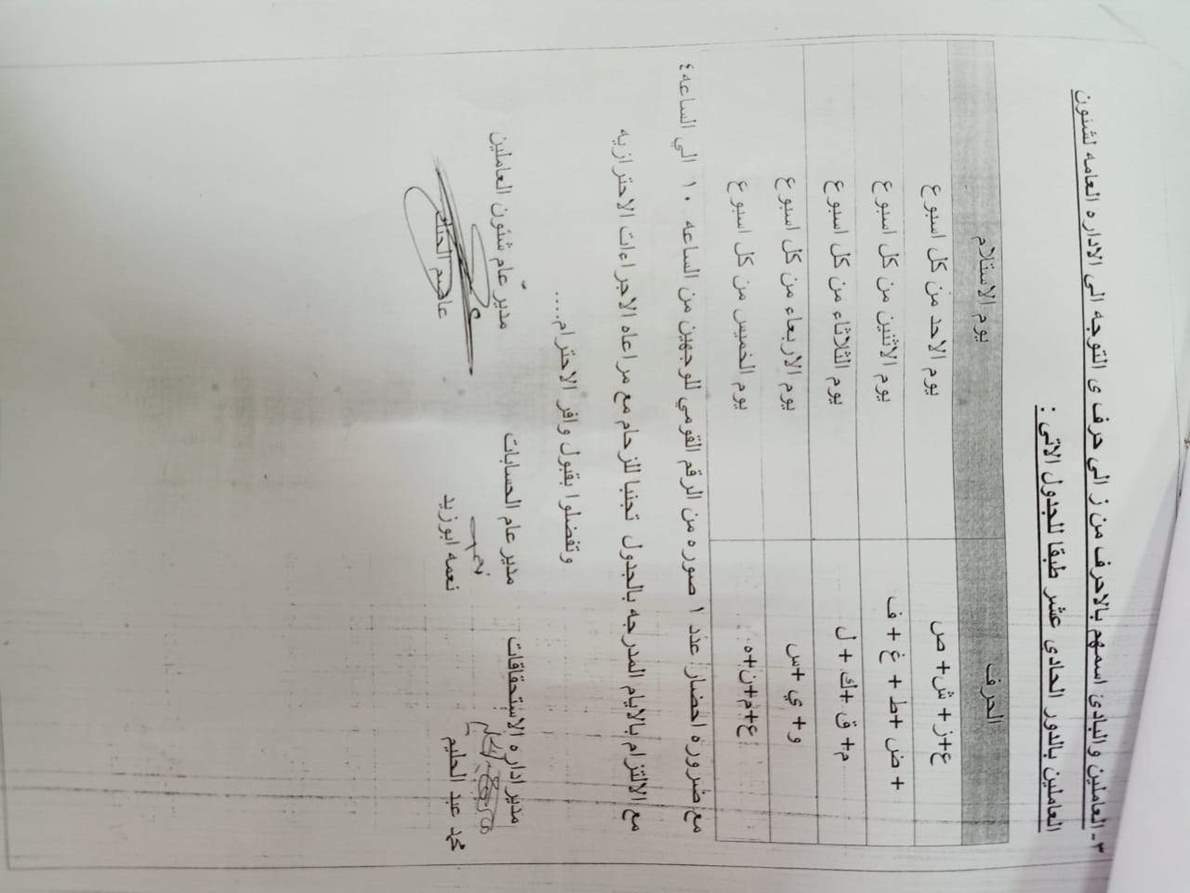 ٣- العاملين والبادئ اسمهم بالاحرف من ز الى حرف ى التوجه الى الاداره العامه لشئون
العاملين بالدور الحادى عشر طبقا للجدول الاتى :
الحرف يوم الاستلام
ع+ز+ ش+ ص يوم الاحد من كل اسبوع
+ ض +ط + غ + ف يوم الاثنين من كل اسبوع
م+ ق +ك + ل يوم الثلاثاء من كل اسبوع
و+ ي +س يوم الاربعاء من كل اسبوع
ع+م+ن+ه يوم الخميس من كل اسبوع
مع ضروره احضار عدد ١ صوره من الرقم القومي للوجهين من الساعه ١٠ الي الساعه ٤
مع الالتزام بالايام المدرجه بالجدول تجنبا للزحام مع مراعاه الاجراءات الاحترازيه
وتفضلوا بقبول وافر الاحترام....
مدير اداره الاستحقاقات مدير عام الحسابات مدير عام شئون العاملين
محمد عبد الحليم نعمه ابوزيد عاصم